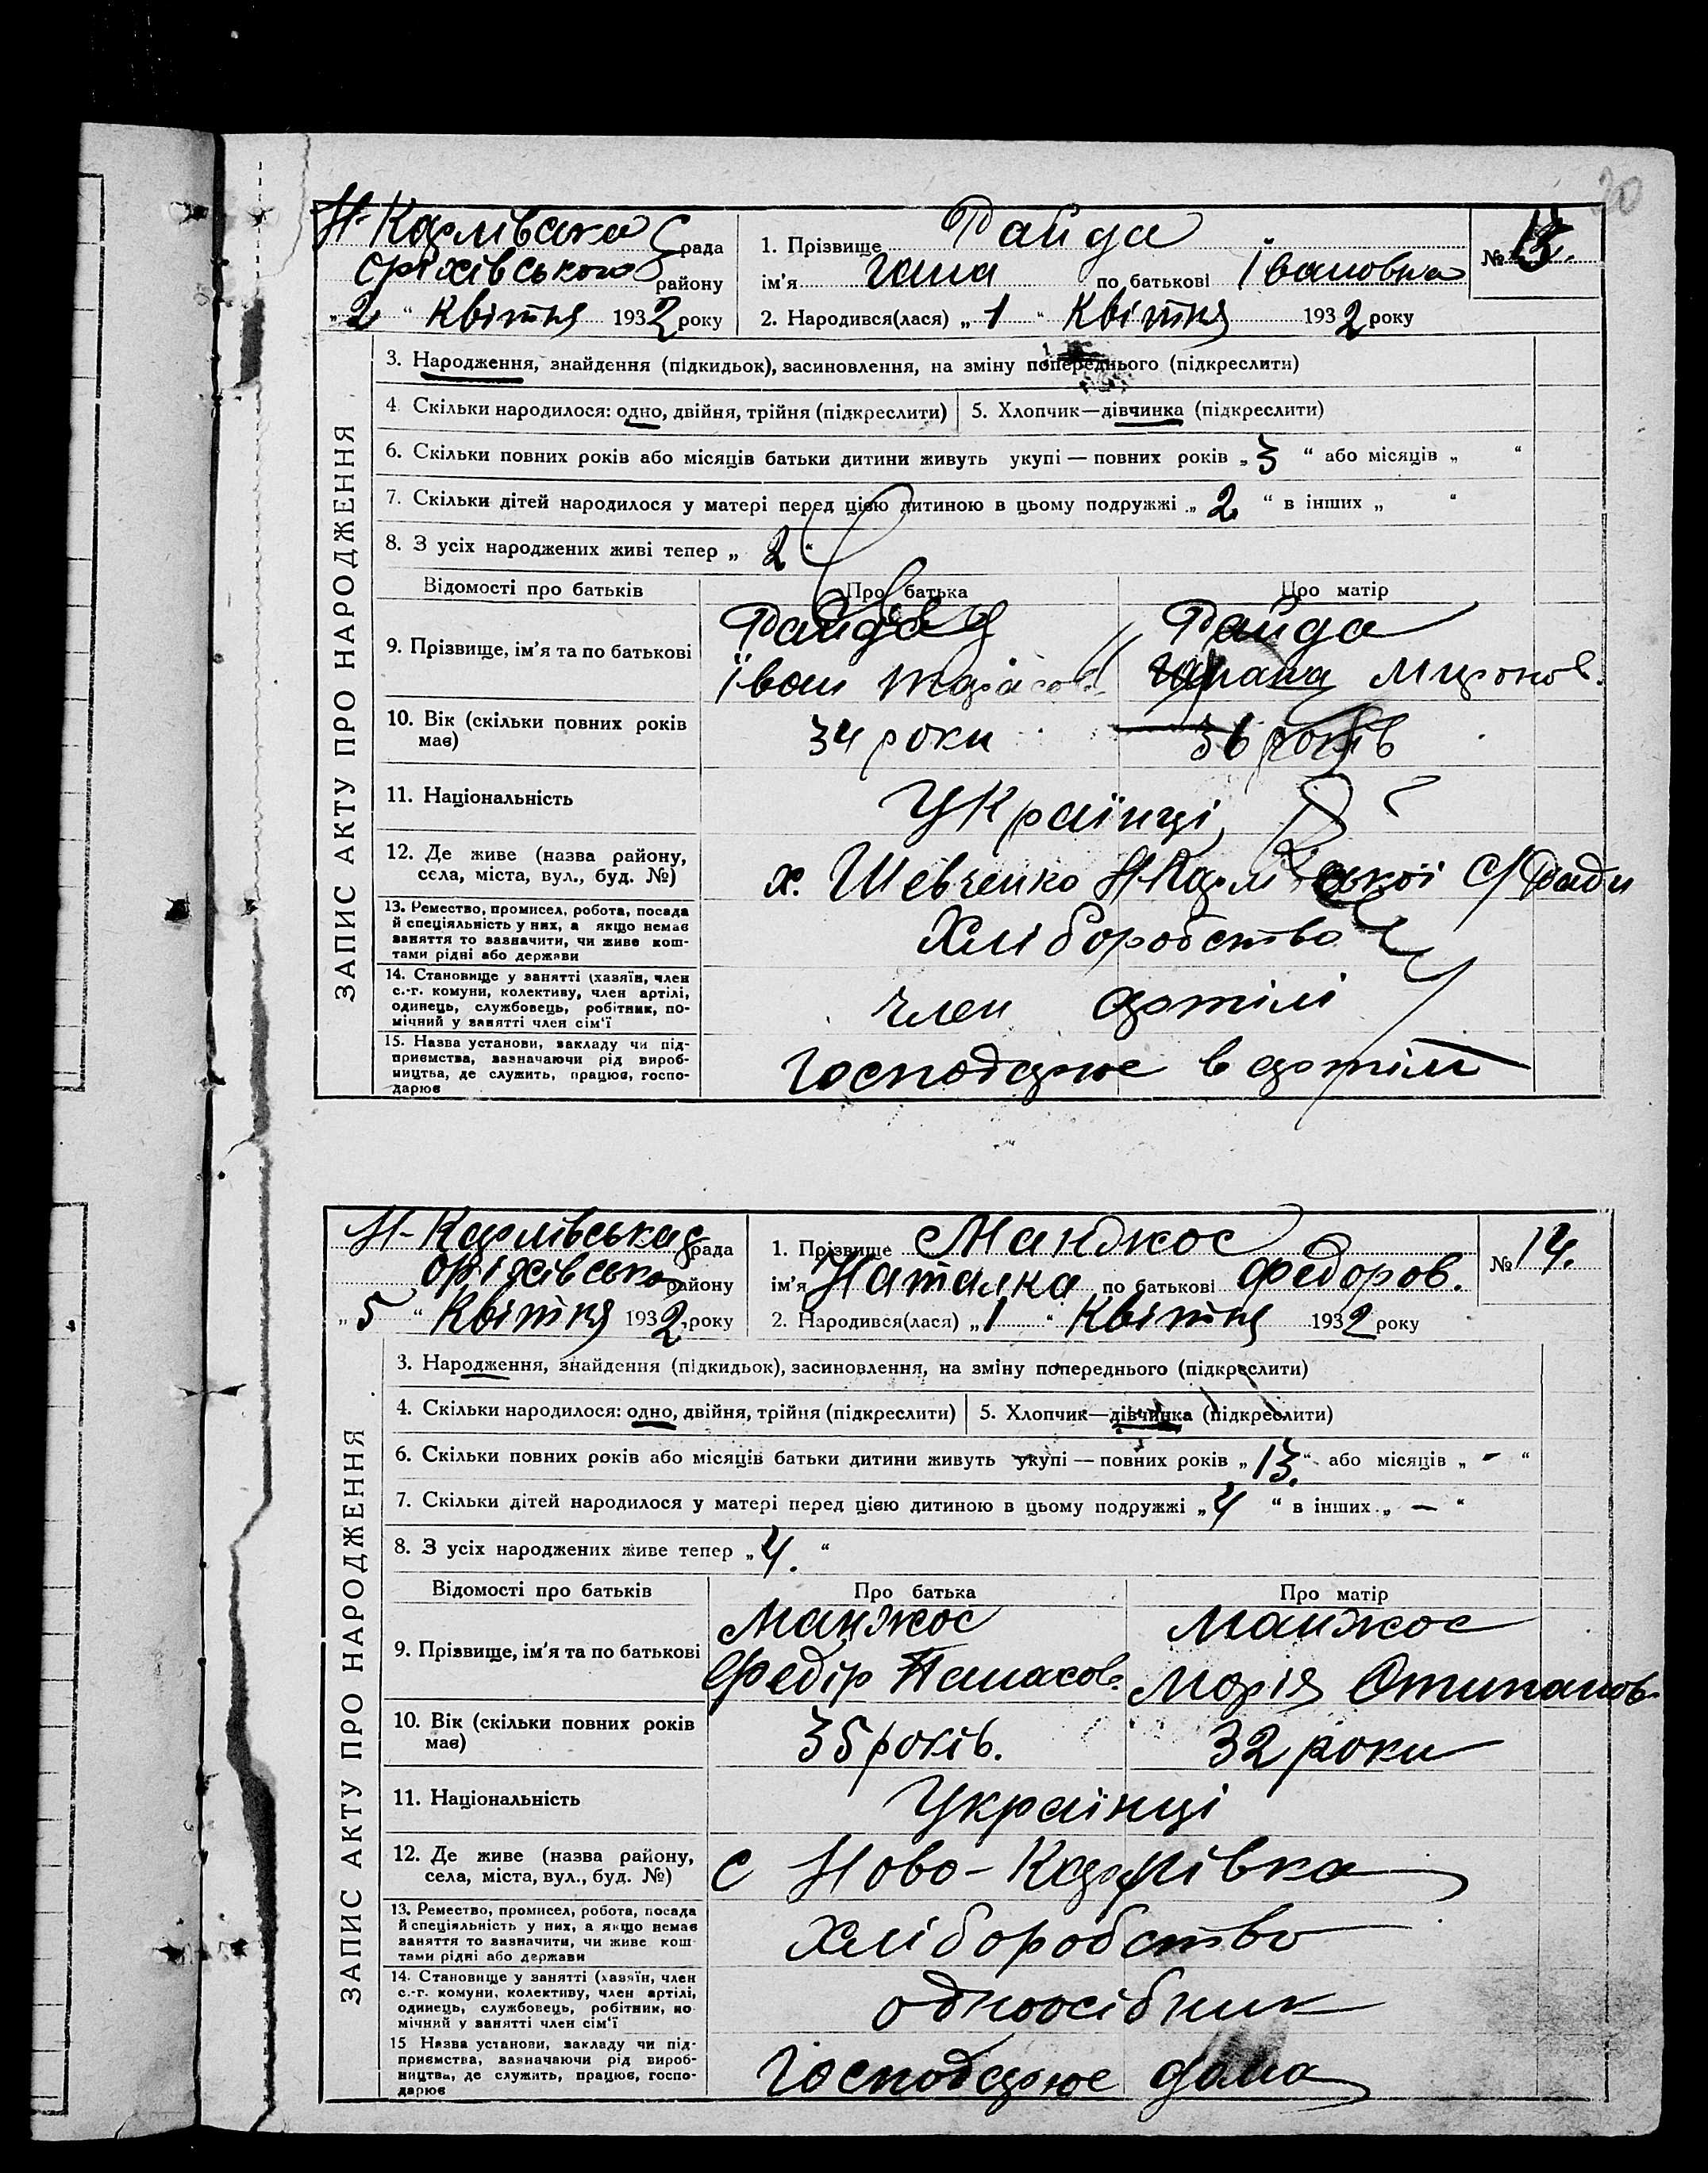 20
Н-Карлівська С рада
Оріхівського району
„2“ Квітня 1932 року
1. Прізвище Райда
ім'я Гана по батькові Івановна
2. Народився(лася) „1“ Квітня 1932 року
№ 13.
ЗАПИС АКТУ ПРО НАРОДЖЕННЯ
3. Народження, знайдення (підкидьок), засиновлення, на зміну попереднього (підкреслити)
4 Скільки народилося: одно, двійня, трійня (підкреслити)
5. Хлопчик—дівчинка (підкреслити)
6. Скільки повних років або місяців батьки дитини живуть укупі — повних років „3“ або місяців „ “
7. Скільки дітей народилося у матері перед цією дитиною в цьому подружжі „2“ в інших „ “
8. З усіх народжених живі тепер „2“
Відомості про батьків Про батька Про матір
9. Прізвище, ім'я та по батькові
Райда
Іван Тарасов.
Райда
Миронов.
10. Вік (скільки повних років
має)
34 роки
36 років
11. Національність
Українці
12. Де живе (назва району,
села, міста, вул., буд. №)
х. Шевченко Н-Карлівської С/Ради
13. Ремество, промисел, робота, посада
й спеціяльність у них, а якщо немає
заняття то зазначити, чи живе кош-
тами рідні або держави
Хліборобство
14. Становище у занятті (хазяїн, член
с.-г. комуни, колективу, член артілі,
одинець, службовець, робітник, по-
мічний у занятті член сім'ї
член артілі
15. Назва установи, закладу чи під-
приємства, зазначаючи рід вироб-
ництва, де служить, працює, госпо-
дарює
Господарює в артілі
Н-Карлівська С рада
Оріхівсько району
„5“ Квітня 1932 року
1. Прізвище Манджос
ім'я Наталка по батькові Федоров.
2. Народився(лася) „1“ Квітня 1932 року
№ 14.
ЗАПИС АКТУ ПРО НАРОДЖЕННЯ
3. Народження, знайдення (підкидьок), засиновлення, на зміну попереднього (підкреслити)
4. Скільки народилося: одно, двійня, трійня (підкреслити)
5. Хлопчик—дівчинка (підкреслити)
6. Скільки повних років або місяців батьки дитини живуть укупі — повних років „13.“ або місяців „-“
7. Скільки дітей народилося у матері перед цією дитиною в цьому подружжі „4“ в інших „—“
8. З усіх народжених живе тепер „4.“
Відомості про батьків Про батька Про матір
9. Прізвище, ім'я та по батькові
Манжос
Федір Панасов.
Манжос
Марія
10. Вік (скільки повних років
має)
35 років.
32 роки
11. Національність
Українці
12. Де живе (назва району,
села, міста, вул., буд. №)
с Ново-Карлівка
13. Ремество, промисел, робота, посада
й спеціяльність у них, а якщо немає
заняття то зазначити, чи живе кош-
тами рідні або держави
Хліборобство
14. Становище у занятті (хазяїн, член
с.-г. комуни, колективу, член артілі,
одинець, службовець, робітник, по-
мічний у занятті член сім'ї
одноосібник
15 Назва установи, закладу чи під-
приємства, зазначаючи рід вироб-
ництва, де служить, працює, госпо-
дарює
Господарює дома